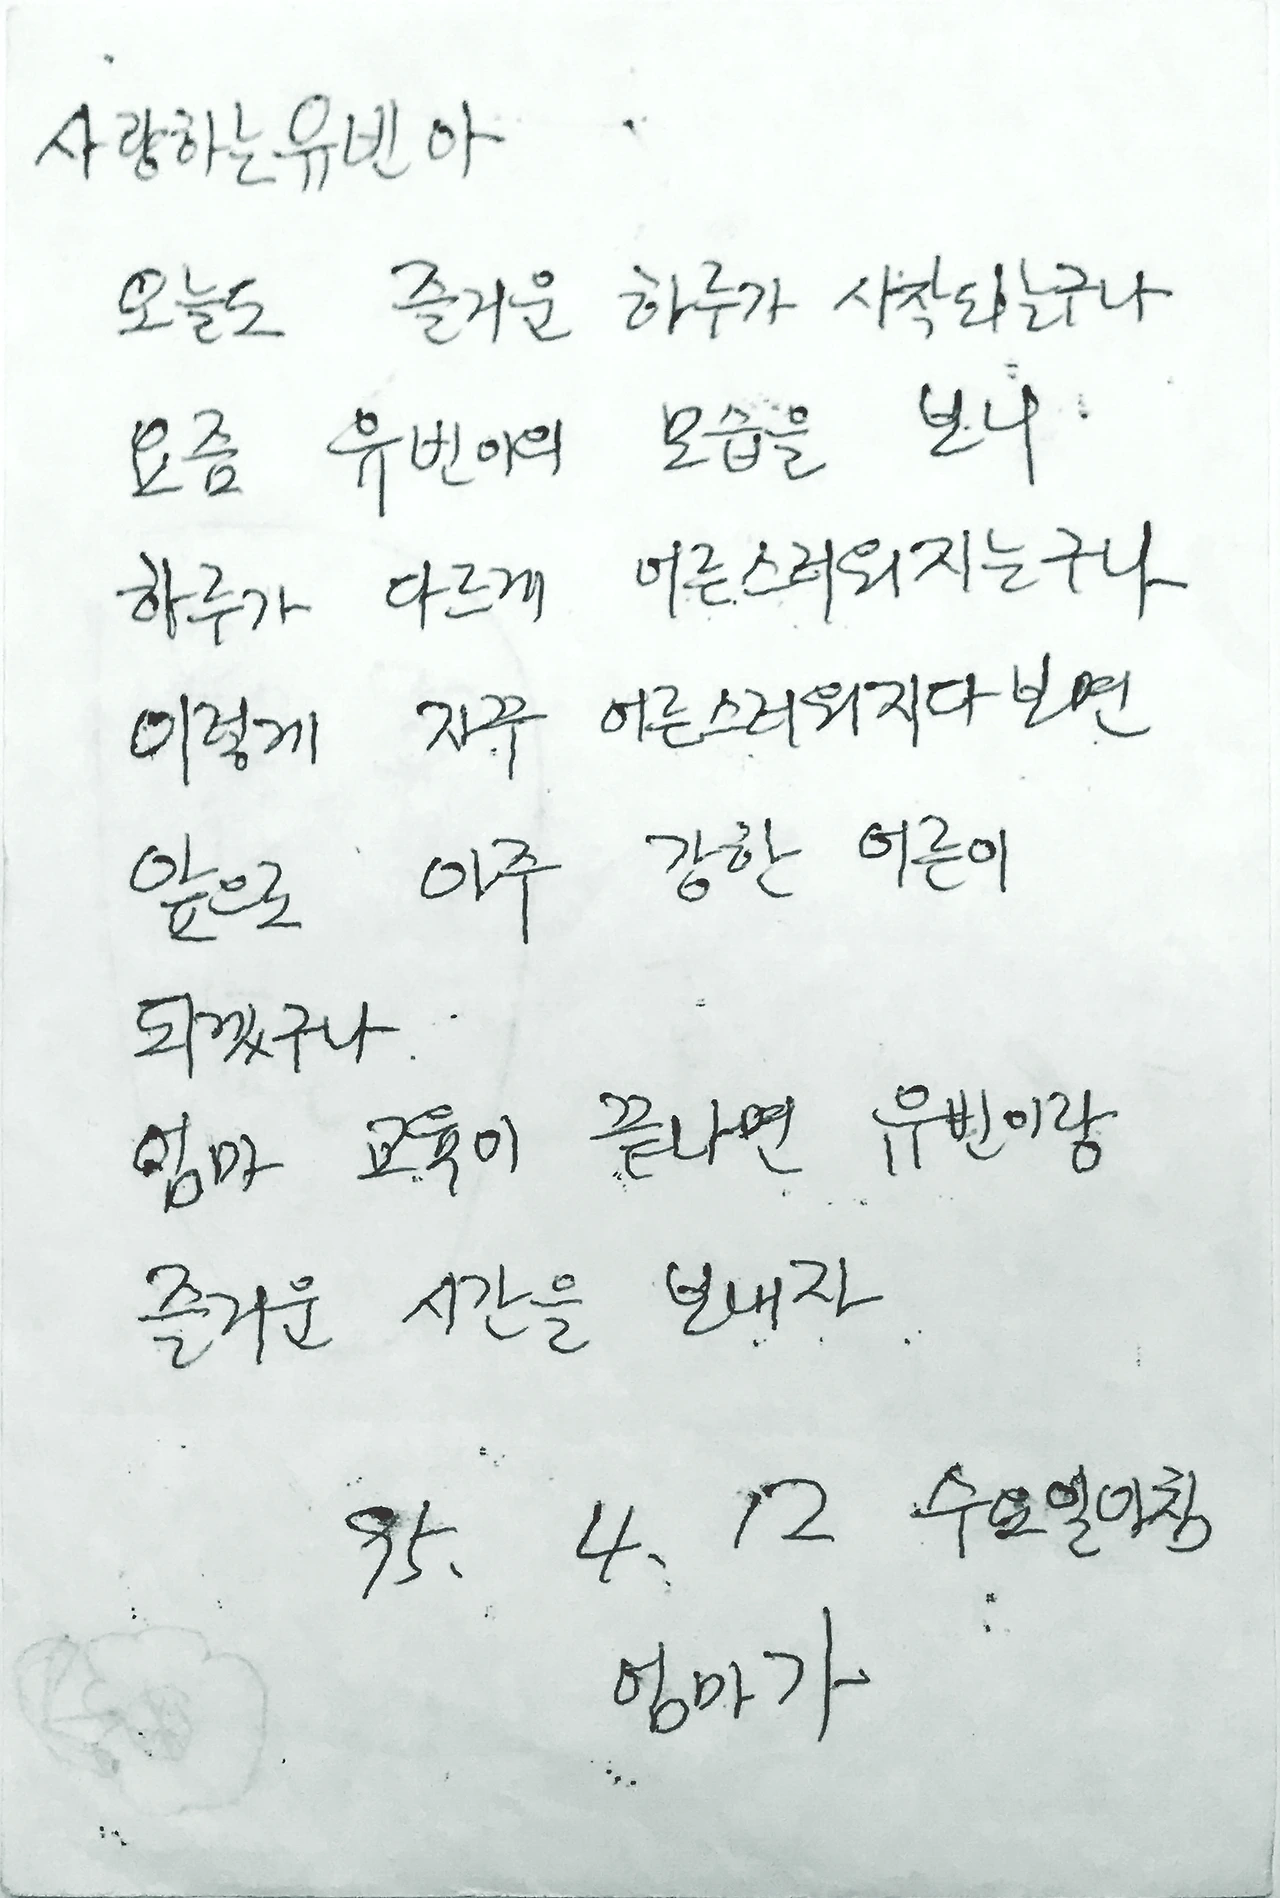 사랑하는유빈아
오늘도 즐거운 하루가 시작되는구나
요즘 유빈이의 모습을 보니
하루가 다르게 어른스러워지는구나
이렇게 자꾸 어른스러워지다보면
앞으로 아주 강한 어른이
되겠구나.
엄마 교육이 끝나면 유빈이랑
즐거운 시간을 보내자.
95. 4. 12 수요일아침
엄마가